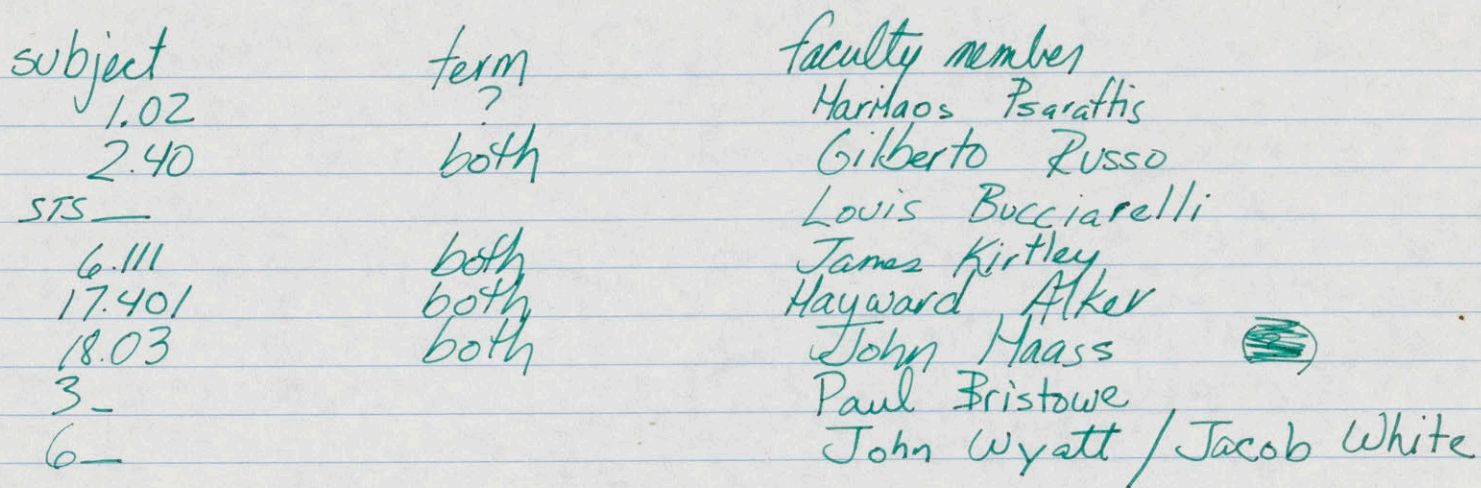 subject term faculty member
1.02 ? Harilaos Psaraftis
2.40 both Gilberto Russo
STS__ Louis Bucciarelli
6.111 both James Kirtley
17.401 both Hayward Alker
18.03 both John Haass
3_ Paul Bristowe
6_ John Wyatt / Jacob White